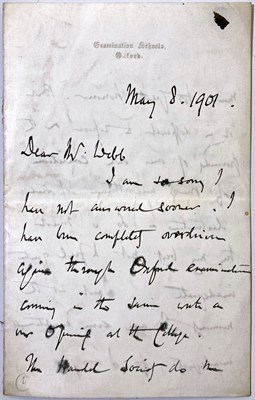 Examination Schools.
Oxford.
May 8. 1901.
Dear Mr Webb
I am so sorry I
have not answered sooner. I
have been completely overdriven
again through Oxford examinations
coming in the same with
our Opening at the College.
The Handel Society do me